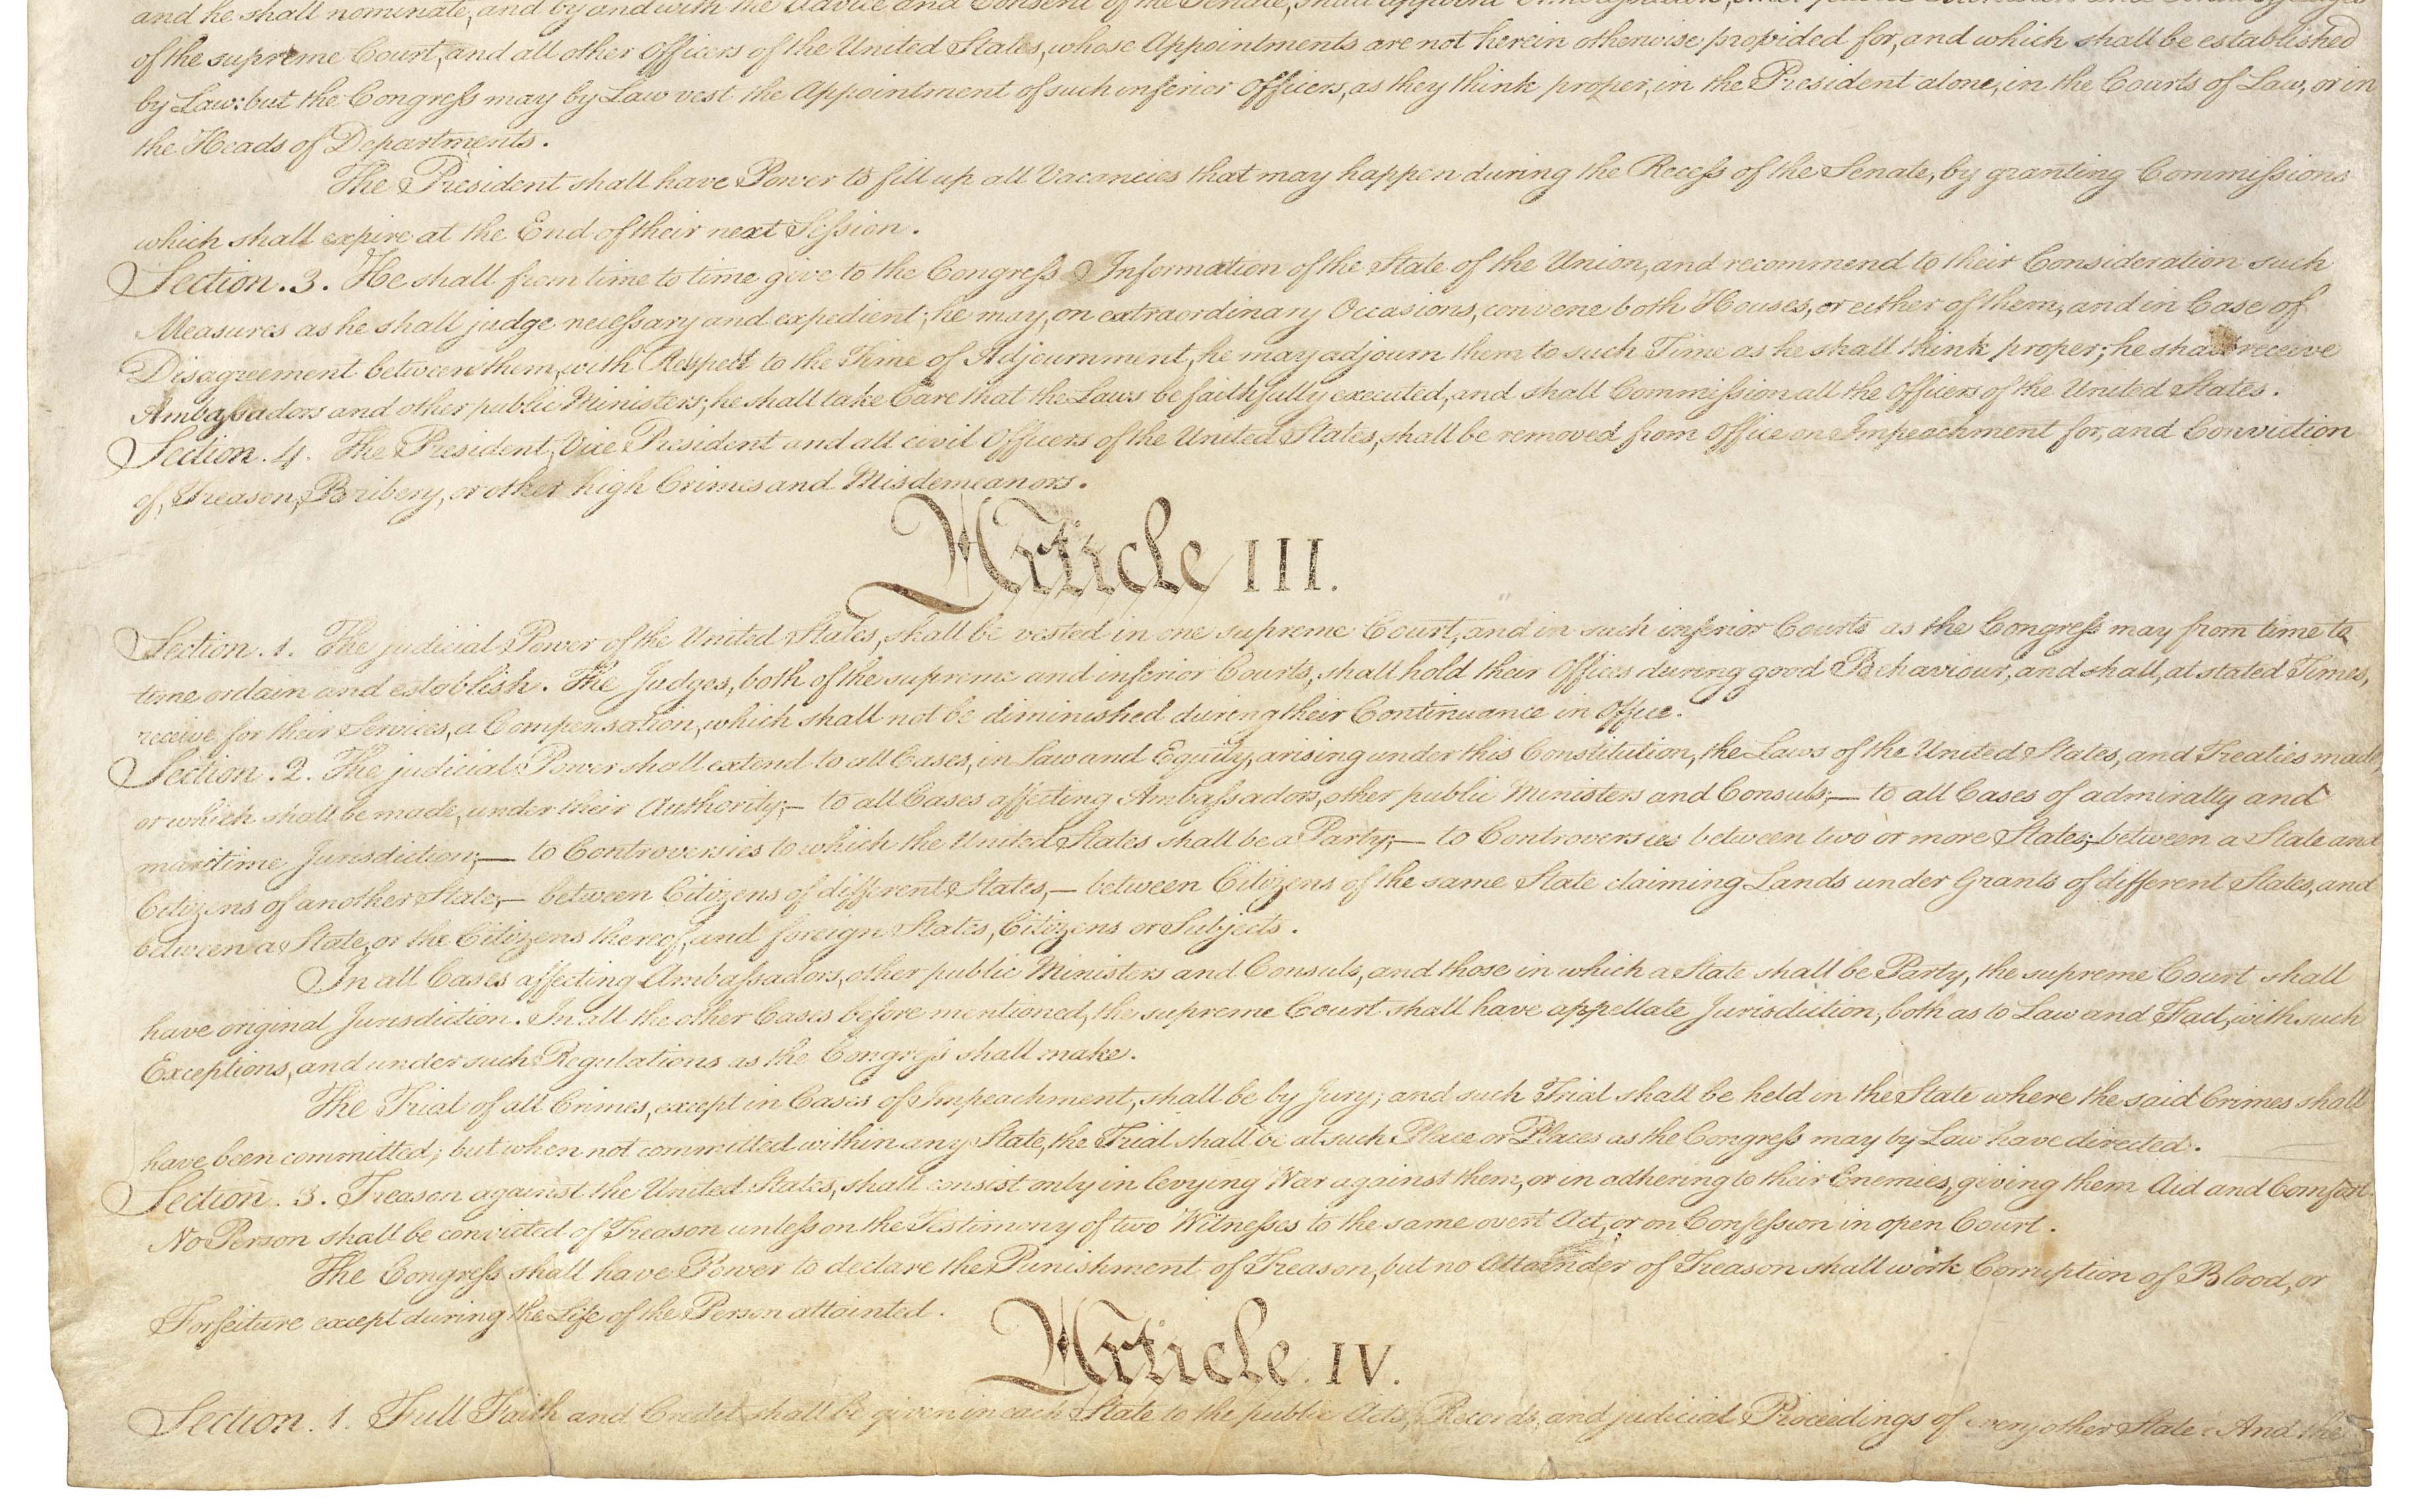 and he shall nominate, and by and with the Advice and Consent of the Senate, shall appoint Ambassadors, other public Ministers and Consuls, Judges
of the supreme Court, and all other Officers of the United States, whose Appointments are not herein otherwise provided for, and which shall be established
by Law: but the Congress may by Law vest the Appointment of such inferior Officers, as they think proper, in the President alone, in the Courts of Law, or in
the Heads of Departments.
The President shall have Power to fill up all Vacancies that may happen during the Recess of the Senate, by granting Commissions
which shall expire at the End of their next Session.
Section. 3. He shall from time to time give to the Congress Information of the State of the Union, and recommend to their Consideration such
Measures as he shall judge necessary and expedient; he may, on extraordinary Occasions, convene both Houses, or either of them, and in Case of
Disagreement between them, with Respect to the Time of Adjournment, he may adjourn them to such Time as he shall think proper; he shall receive
Ambassadors and other public Ministers; he shall take Care that the Laws be faithfully executed, and shall Commission all the Officers of the United States.
Section. 4. The President, Vice President and all civil Officers of the United States, shall be removed from Office on Impeachment for, and Conviction
of, Treason, Bribery, or other high Crimes and Misdemeanors.
Article III.
Section. 1. The judicial Power of the United States, shall be vested in one supreme Court, and in such inferior Courts as the Congress may from time to
time ordain and establish. The Judges, both of the supreme and inferior Courts, shall hold their Offices during good Behaviour, and shall, at stated Times,
receive for their Services, a Compensation, which shall not be diminished during their Continuance in Office.
Section. 2. The judicial Power shall extend to all Cases, in Law and Equity, arising under this Constitution, the Laws of the United States, and Treaties made,
or which shall be made, under their Authority;— to all Cases affecting Ambassadors, other public Ministers and Consuls;— to all Cases of admiralty and
maritime Jurisdiction;— to Controversies to which the United States shall be a Party;— to Controversies between two or more States;— between a State and
Citizens of another State;— between Citizens of different States,— between Citizens of the same State claiming Lands under Grants of different States, and
between a State, or the Citizens thereof, and foreign States, Citizens or Subjects.
In all Cases affecting Ambassadors, other public Ministers and Consuls, and those in which a State shall be Party, the supreme Court shall
have original Jurisdiction. In all the other Cases before mentioned, the supreme Court shall have appellate Jurisdiction, both as to Law and Fact, with such
Exceptions, and under such Regulations as the Congress shall make.
The Trial of all Crimes, except in Cases of Impeachment, shall be by Jury; and such Trial shall be held in the State where the said Crimes shall
have been committed; but when not committed within any State, the Trial shall be at such Place or Places as the Congress may by Law have directed.
Section. 3. Treason against the United States, shall consist only in levying War against them, or in adhering to their Enemies, giving them Aid and Comfort.
No Person shall be convicted of Treason unless on the Testimony of two Witnesses to the same overt Act, or on Confession in open Court.
The Congress shall have Power to declare the Punishment of Treason, but no Attainder of Treason shall work Corruption of Blood, or
Forfeiture except during the Life of the Person attainted.
Article. IV.
Section. 1. Full Faith and Credit shall be given in each State to the public Acts, Records, and judicial Proceedings of every other State. And the